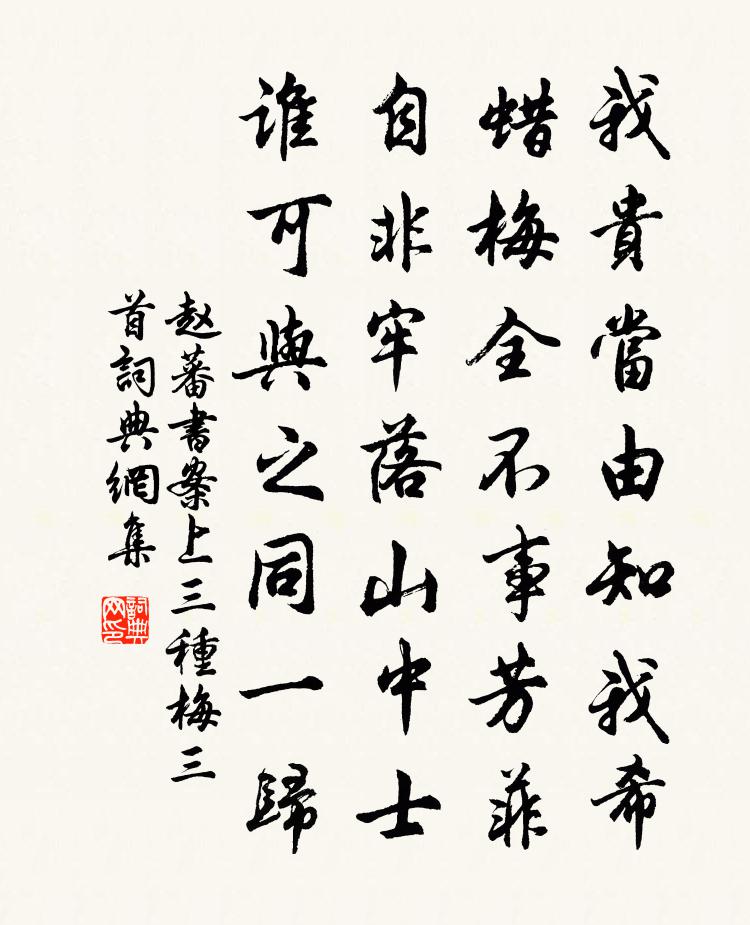 我貴當由知我希
蜡梅全不事芳菲
自非牢落山中士
誰可與之同一歸
赵蕃書案上三種梅三
首詞典網集
詞典
网印